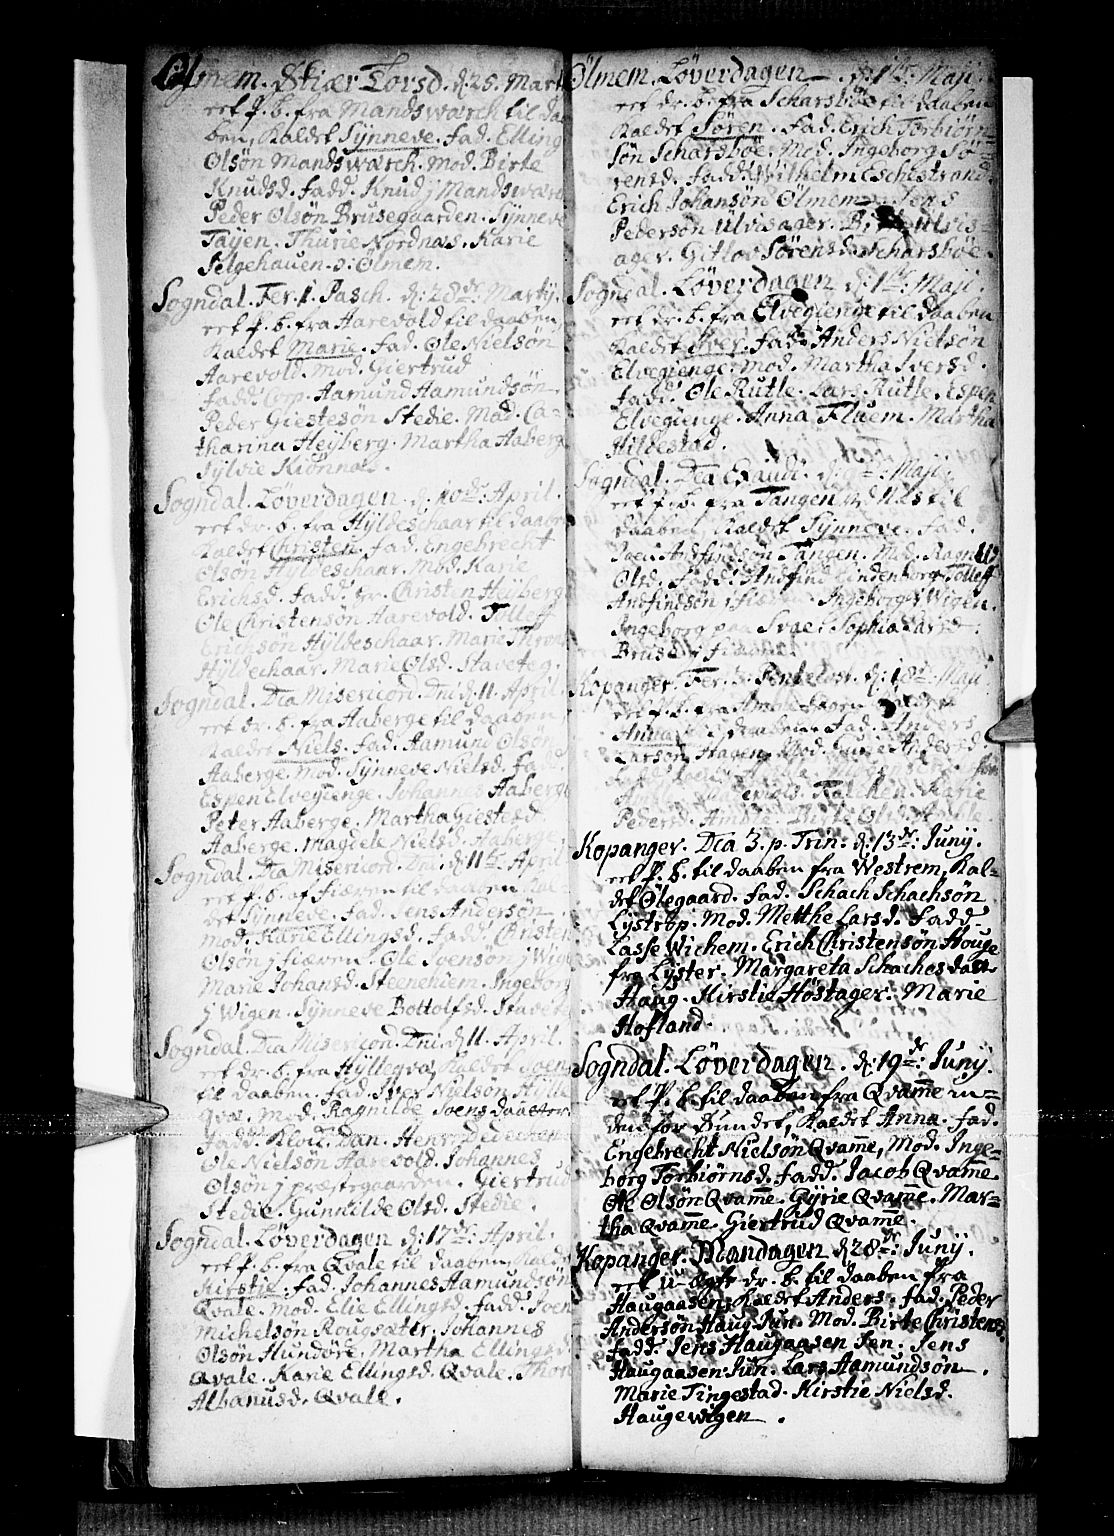 Ølmem. Skiær Torsd. d. 25. Marti
eet p. b. fra Mandswarch til daa
ben, kaldet Synneve. fad. Elling
Olsøn Mandswarch. Mod. Birte
Knudsd. fadd. Knud j Mandswarch
Peder Olsøn Brusegaarden. Synneve
Tayen. Thurie Nordnæs. Karie
Selgehauen. Ølmem.
Sogndal. Fer. 1. Pasch. d: 28de: Martij.
eet p. b. fra Aarevold til daaben
kaldet Marie. fad. Ole Nielsøn
Aarevold. Mod. Giertrud
fadd. Corp. Aamund Aamundsøn
Peder Giestesøn Stedie. Mad. Ca=
tharina Heyberg. Martha Aaberge
Sylvie Kiønnaas.
Sogndal. Løverdagen d. 10de: April.
eet dr. b. fra Hyldeschaar til daaben
kaldet Christen. fad. Engebrecht
Olsøn Hyldeschaar. Mod. Karie
Erichsd. fadd. Sr. Christen Heyberg
Ole Christensøn Aarevold. Tolleff
Erichsøn Hyldeschaar. Marie
Hyldechaar. Marie Olsd. Staveteg.
Sogndal. Dca Misericord. Dni d. 11. April.
eet dr. b. fra Aaberge til daaben
kaldet Niels. fad. Aamund Olsøn
Aaberge. Mod. Synneve Nielsd. fad
Espen Elvegienge. Johannes Aaberge
Peter Aaberge. Martha Giestesd.
Aaberge. Magdele Nielsd. Aaberge
Sogndal. Dca Misericord. Dni. d. 11te: April
eet p. b. af Fiæren til daaben kal=
det Synneve. fad. Jens Andersøn
Mod. Karie Ellingsd. fadd. Christen
Olsøn j Fiæren. Ole Svensøn j Wige
Marie Johansd. Steenehiem. Ingeborg
j Wigen. Synneve Bottolfsd. Stavete
Sogndal. Dca Misericon. Dni d. 11. April.
eet dr. b. fra Hyllegva, kaldet Joen
til daaben. fad. Iver Nielsøn Hylle
Qva. Mod. Ragnilde Joens daatter
fadd. Klocr. Dan. Henr.
Ole Nielsøn Aarevold. Johannes
Olsøn j præstegaarden. Giertrud
Stedie. Gunnilde Olsd. Stedie.
Sogndal. Løverdagen d: 17de: April.
eet p. b. fra Qvale til daaben kaldet
Kirstie. fad. Johannes Aamundsøn
Qvale. Mod. Elie Ellingsd. fadd. Joen
Michelsøn Rougsæter, Johannes
Olsøn Hundere, Martha Ellingsd.
Qvale. Karie Ellingsd. Qvale.
Albanusd. Qvale.
Ølmem. Løverdagen d. 1te: Maji.
eet dr. b. fra Scharsbøe til daaben
kaldet Søren. fad. Erich Torbiørn=
søn Scharsbøe. Mod. Ingeborg Sø=
rensd. fadd. Wilhelm Eschestrand.
Erich Johansøn Ølmem. Jens
Pedersøn Ulvisager. Ulvis=
ager. Gitlov Sørensd. Scharsbøe
Sogndal. Løverdagen d. 1te: Maji.
eet dr. b. fra Elvegienge til daaben
kaldet Iver. fad. Anders Nielsøn
Elvegienge. Mod. Martha Iversd.
fadd. Ole Rutle. Lars Rutle. Espen
Elvegienge. Anna Fluem. Martha
Hildestad.
Sogndal. Dca Exaudi. d. 9de: Maji.
eet p. b. fra Tangen til
daaben kaldet Synneve. fad.
Andfindsøn Tangen. Mod. Ragnild
Olsd. fadd. Andfind Lindenborg. Tolleff
Andfindsøn j Fiæren. Ingeborg Wigen.
Ingeborg paa Svae. Sophia Larsd.
Kopanger. Fer. 3. Pentecost. d. 18de: Maji
eet p. b. fra Amble
Anna til daaben. fad. Anders
Larsøn Hagen. Mod. Andersd.
Kalchen. Karie
Pedersd. Amble. Birte Olsd. Amble.
Kopanger. Dca 3. p. Trin: d: 13de: Junij.
eet p. b. til daaben fra Westrem, kal=
det Olegaard. fad. Schach Schachsøn
Lystrop. Mod. Metthe Larsd. fadd.
Lasse Wichem. Erich Christensøn Houge
fra Lyster. Margareta Schachesdatt
Haug. Kirstie Høstager. Marie
Hofland.
Sogndal. Løverdagen. d: 19de: Junij.
eet p. b. til daaben fra Qvam̅e in=
den for Sundet, kaldet Anna. fad.
Engebrecht Nielsøn Qvam̅e, Mod. Inge=
borg Torbiørnsd. fadd. Jacob Qvam̅e
Ole Olsøn Qvam̅e. Gyrie Qvam̅e. Mar=
tha Qvam̅e. Giertrud Qvam̅e.
Kopanger. Mandagen d. 28de: Junij.
eet u-ægte dr. b. til daaben fra
Haugaasen, kaldet Anders. fad. Peder
Andersøn Haug Jun. Mod. Birte Christensd.
fadd. Jens Haugaasen Sen. Jens
Haugaasen Jun. Lars Aamundsøn.
Marie Tingestad. Kirstie Nielsd.
Haugewigen.